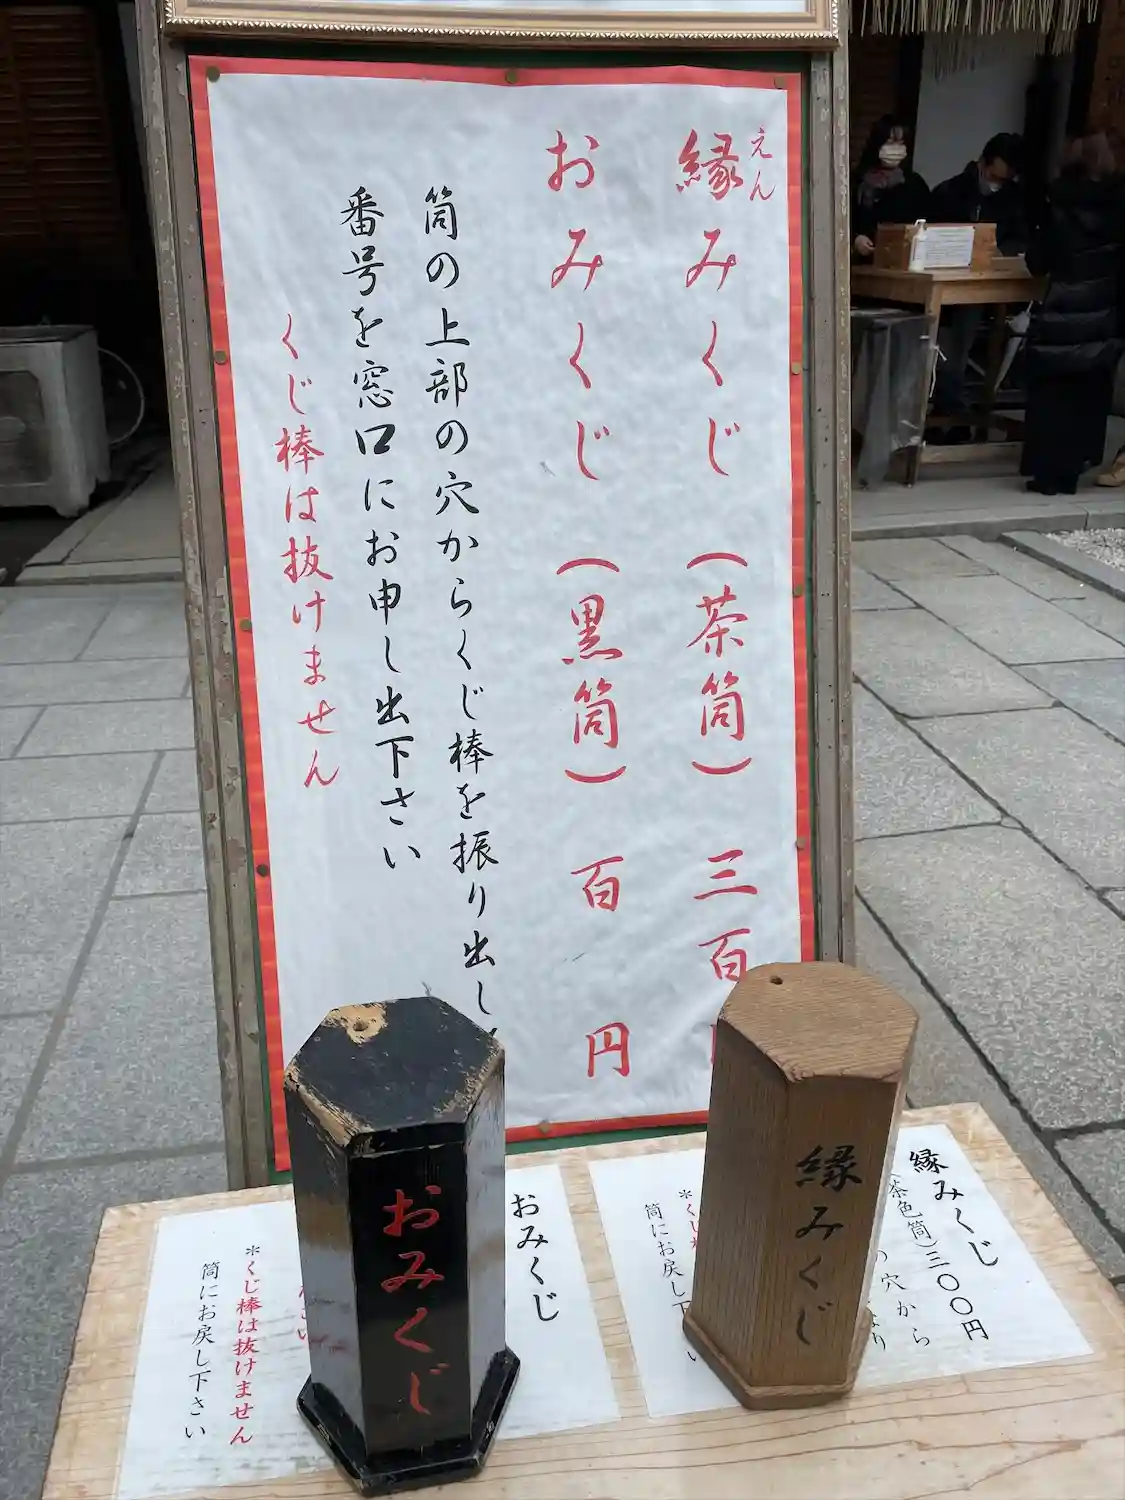 えん
縁みくじ(茶筒)三百
おみくじ(黒筒)百円
筒の上部の穴からくじ棒を振り出し
番号を窓口にお申し出下さい
くじ棒は抜けません
おみくじ
縁みくじ
縁みくじ
(茶色筒)三〇〇円
の穴から
*くじ
筒にお戻し下
おみくじ
*くじ棒は抜けません
筒にお戻し下さい